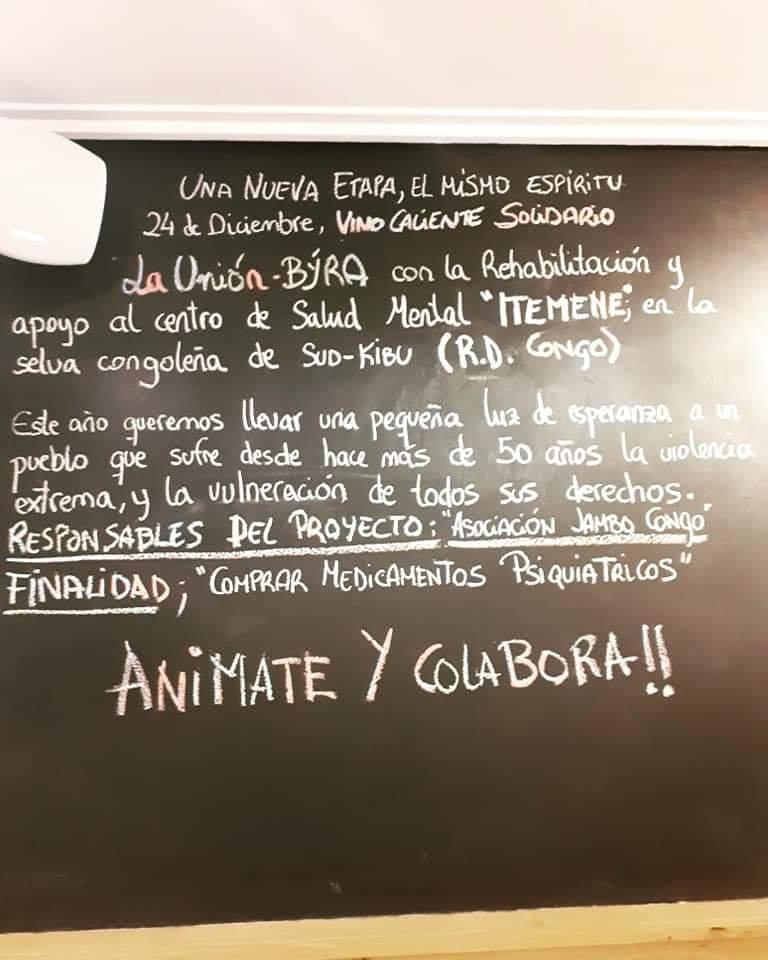 UNA NUEVA ETAPA, EL MISMO ESPIRITU
24 de Diciembre, VINO CALIENTE SOLIDARIO
La Unión-BÝRA con la Rehabilitación y
apoyo al centro de Salud Mental "ITEMENE", en la
selva congoleña de SUD-KIBU (R.D. CONGO)
Este año queremos llevar una pequeña luz de esperanza a un
pueblo que sufre desde hace más de 50 años la violencia
extrema, y la vulneración de todos sus derechos.
RESPONSABLES DEL PROYECTO: "ASOCIACIÓN JAMBO CONGO"
FINALIDAD; "COMPRAR MEDICAMENTOS PSIQUIATRICOS"
ANIMATE Y COLABORA!!